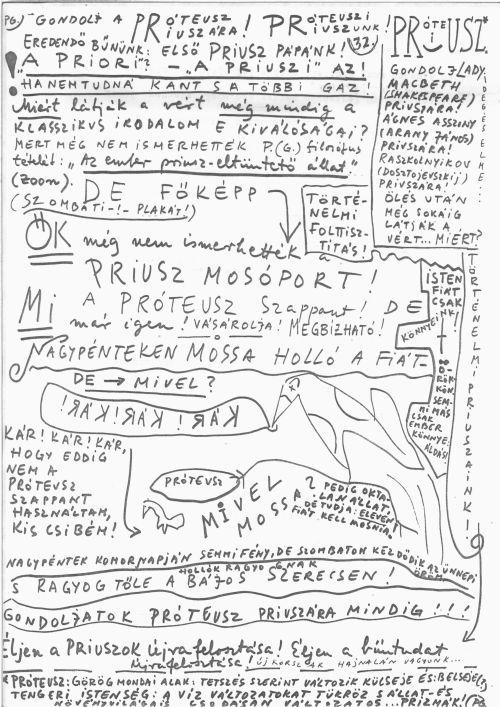 PG.) "GONDOLJ A PRÓTEUSZ PRIUSZÁRA! PRÓTEUSZI PRIUSZUNK!
EREDENDŐ BŰNÜNK: ELSŐ PRIUSZ PAPÁNK! (32.)
! A PRIORI"? — "A PRIUSZI" AZ!
HA NEM TUDNÁ KANT S A TÖBBI GAZ!
Miért látják a vért még mindig a
KLASSZIKUS IRODALOM E KIVÁLÓSÁGAI?
MERT MÉG NEM ISMERHETTÉK P.(G.) filozófus
tételét: "Az ember priusz-eltüntető állat".
(Zoom).
(SZOMBATI-!- PLAKÁT!)
DE FŐKÉPP
TÖRTÉ-
NELMI
FOLTTISZ-
TÍTÁS!
PRÓTEUSZ PRIUSZ
GONDOLJ LADY
MACBETH
(SHAKESPEARE)
PRIUSZÁRA!
ÁGNES ASSZONY
(ARANY JÁNOS)
PRIUSZÁRA!
RASZKOLNYIKOV
(DOSZTOJEVSZKIJ)
PRIUSZÁRA!
ÖLÉS UTÁN
MÉG SOKÁIG
LÁTJÁK A
VÉRT... MIÉRT?
IDÉGÉSELME:
TÖRTÉNELMI PRIUSZAINK!
ŐK még nem ismerhették a
PRIUSZ MOSÓPORT!
Mi A PRÓTEUSZ Szappant! DE
már igen! VÁSÁROLJA! MEGBÍZHATÓ!
NAGYPÉNTEKEN MOSSA HOLLÓ A FIÁT-
ISTEN
FIÁT
CSAK
INK!
KÖNNYEI
Ö-
RÖK-
KÖN.
SEM-
MI MÁS
CSAK
EMBER
KÖNNYE.
ÁLDÁS!
DE → MIVEL?
KÁR! KÁR! KÁR!
KÁR! KÁR! KÁR,
HOGY EDDIG
NEM A
PRÓTEUSZ
SZAPPANT
HASZNÁLTAM,
KIS CSIBÉM!
PRÓTEUSZ
MIVEL
MOSSA?
PEDIG OKTA-
LAN ÁLLAT.
DE TUDJA: ELEVEN
FIÁT KELL MOSNIA.
NAGYPÉNTEK KOMOR NAPJÁN SEMMI FÉNY, DE SZOMBATON KEZDŐDIK AZ ÜNNEPI
ÖRÖM
HOLLÓK RAGYOGNAK
S RAGYOG TŐLE A BÁJOS SZERECSEN!
GONDOLJATOK PRÓTEUSZ PRIUSZÁRA MINDIG!!!
Éljen a PRIUSZOK Újrafelosztása! Éljen a bűntudat
újrafelosztása! ÚJ KORSZAK HAJNALÁN VAGYUNK...
* PRÓTEUSZ: GÖRÖG MONDAI ALAK: TETSZÉS SZERINT VÁLTOZIK KÜLSEJE ÉS BELSEJE (?),
TENGERI ISTENSÉG: A VÍZ VÁLTOZATOKAT TÜKRÖZ S ÁLLAT- ÉS
NÖVÉNYVILÁGA IS CSODÁSAN VÁLTOZATOS... PRIZMÁK! (PG